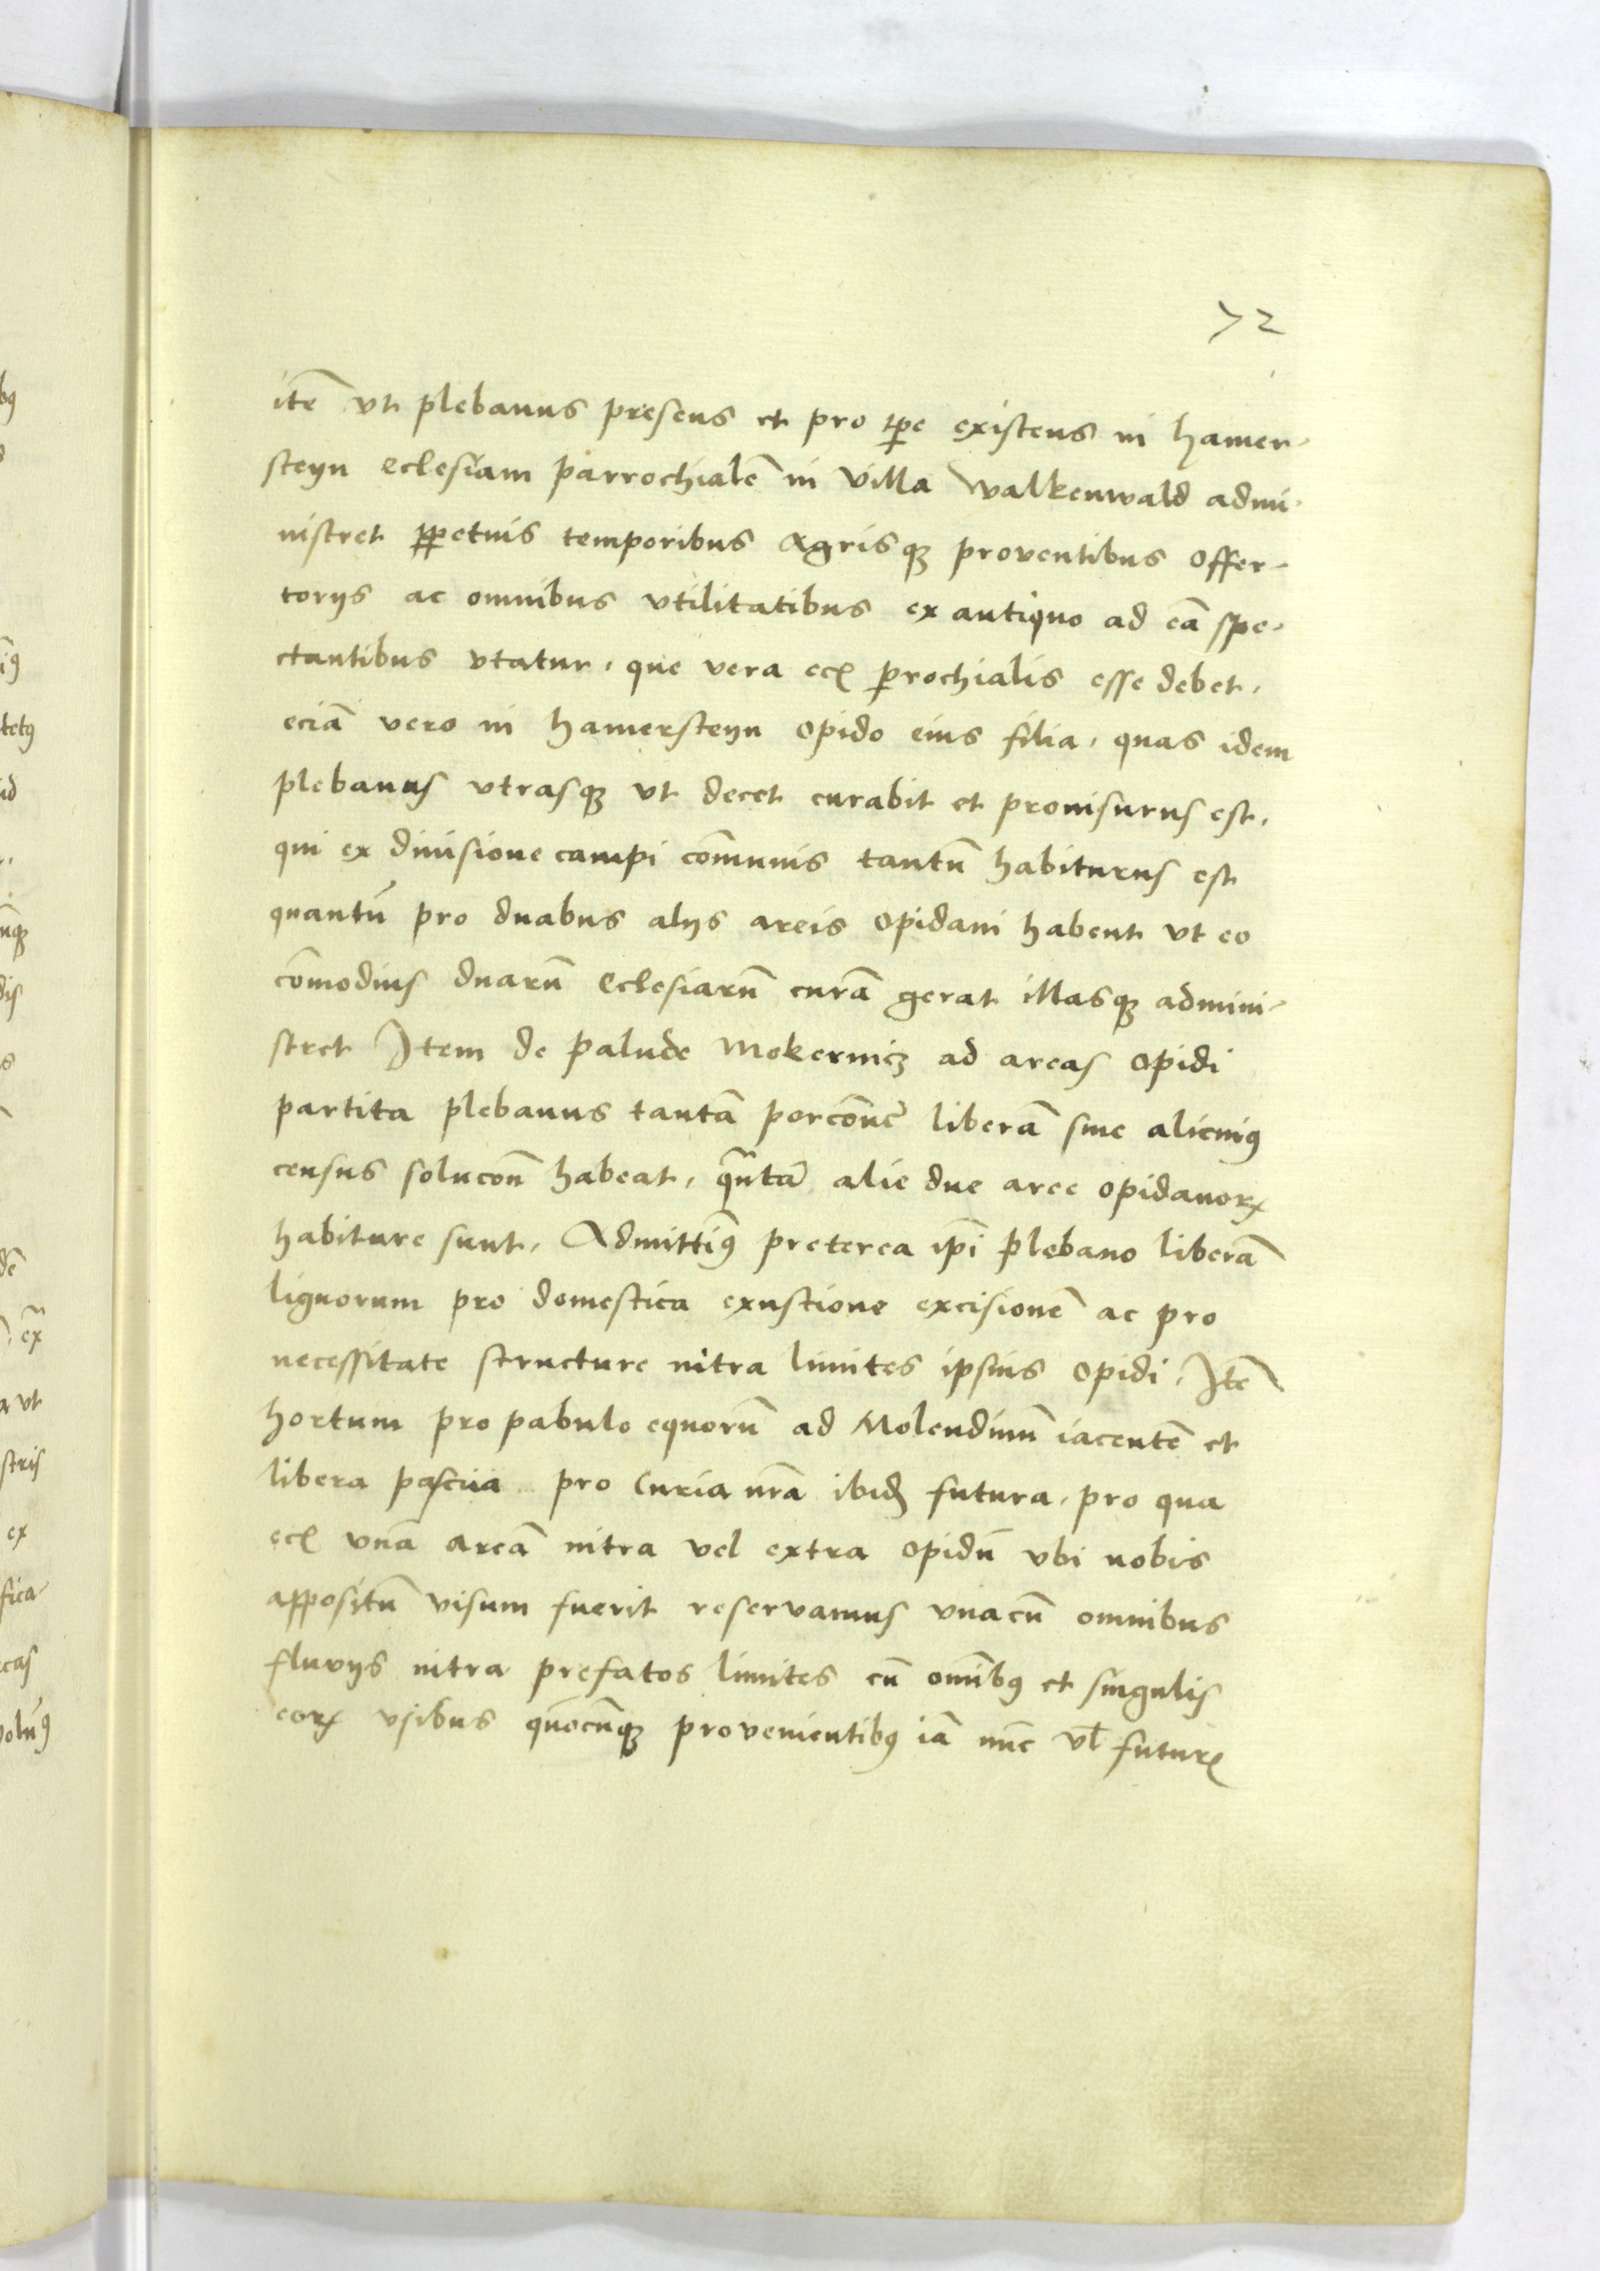 72
itē vt plebanus presens et pro tp̄e existens in hamer-
steyn eclesiam parrochialē in villa walkenwald admi-
nistret ꝑpetuis temporibus agrisqꝫ proventibus offer-
torijs ac omnibus vtilitatibus ex antiquo ad eā spe-
ctantibus vtatur, que vera ecꝭ ꝑrochialis esse debet,
eciā vero in hamersteyn opido eius filia, quas idem
plebanus vtrasqꝫ vt decet curabit et prouisurus est,
qui ex diuisione campi cōmunis tantū habiturus est
quantū pro duabus alijs areis opidani habent vt eo
cōmodius duarū eclesiarū curā gerat illasqꝫ admini-
stret Item de palude Mokernicz ad areas opidi
partita plebanus tantā porcōnē liberā sine alicuiꝰ
census solucōn̄ habeat, qūtā alie due aree opidanoꝝ
habiture sunt, Admittimꝰ preterea ip̄i plebano liberā
lignorum pro domestica exustione excisionē ac pro
necessitate structure intra limites ipsius opidi, Itē
hortum pro pabulo equorū ad Molendinū iacentē et
libera pascua pro Curia nr̄a ibiđ futura, pro qua
ecꝭ vnā areā intra vel extra opidū vbi nobis
appositū visum fuerit reservamus vnacū omnibus
fluvijs intra prefatos limites cū om̄ibꝰ et singulis
eoꝝ vsibus quocūqꝫ provenientibꝰ iā nūc vł futurꝭ